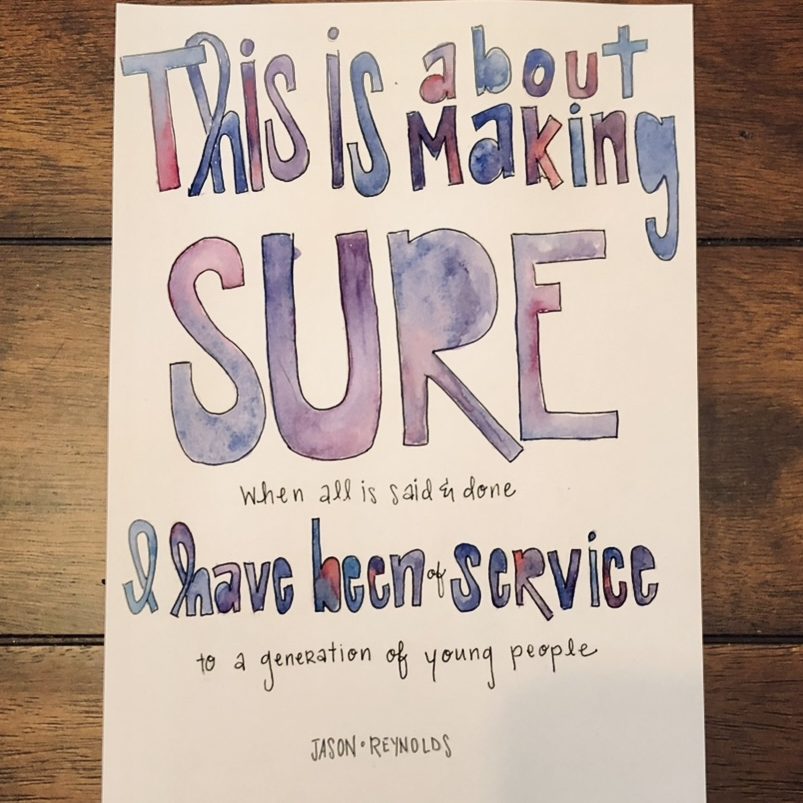 This is about
making
SURE
when all is said & done
I have been of service
to a generation of young people
JASON • REYNOLDS